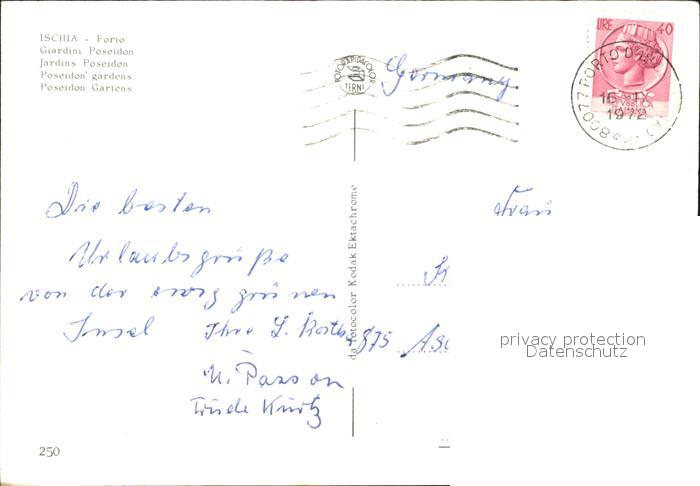 ISCHIA - Forio
Giardini Poseidon
Jardins Poseidon
Poseidon' gardens
Poseidon Gärtens
FOTORAPIDACOLOR
TERNI
Germany
LIRE 40
REPUBBLICA
ITALIANA
80077 PORTO D'
1972
Die besten
Urlaubsgrüße
von der ewig grünen
Insel Ihre
Trude Kurtz
da fotocolor Kodak Ektachrome
Frau
K
875 Asc
privacy protection
Datenschutz
250